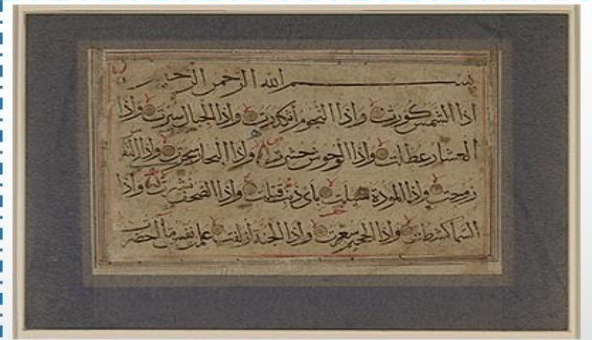 بسم الله الرحمن الرحيم
اذا الشمس كورت واذا النجوم انكدرت واذا الجبال سيرت واذا
العشار عطلت واذا الوحوش حشرت واذا البحار سجرت واذا النفو
زوجت واذا الموءدة سئلت باى ذنب قتلت واذا الصحف نشرت واذا
السما كشطت واذا الجحيم سعرت واذا الجنة ازلفت علمت نفس ما احضرت